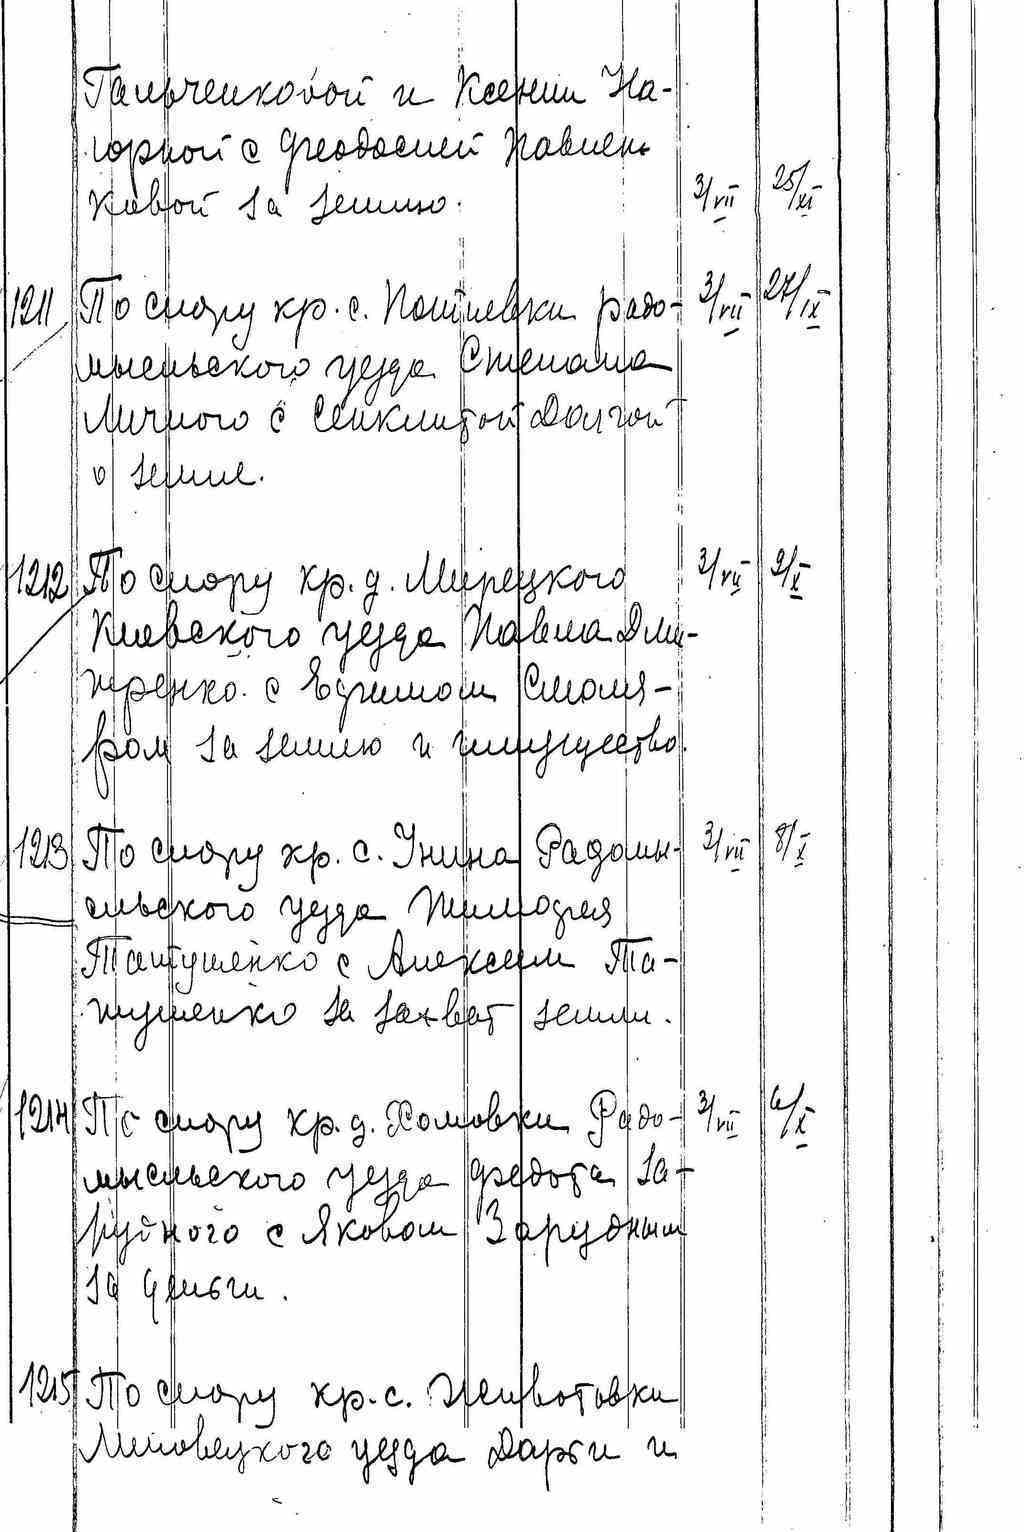 Гальченковой и Ксении На-
горной с Феодосией Павлен-
ковой за землю. 3/VII 25/XI
1211 По спору кр. с. Потиевки радо- 3/VII 27/IX
мысльского уезда Степана
Личного с Сенклитой Долгой
о земле.
1212 По спору кр. д. Мирецкого 3/VII 9/X
Киевского уезда Павла Дми-
тренко с Ефимом Смоля-
ром за землю и имущество.
1213 По спору кр. с. Унина Радомы- 3/VII 8/X
сльского уезда Тимофея
Татушенко с Алексеем Та-
тушенко за захват земли.
1214 По спору кр. д. Хомовки Радо- 3/VII 6/X
мысльского уезда Федота За-
рудного с Яковом Зарудным
за деньги.
1215 По спору кр. с. Животовки
Липовецкого уезда Дарьи и